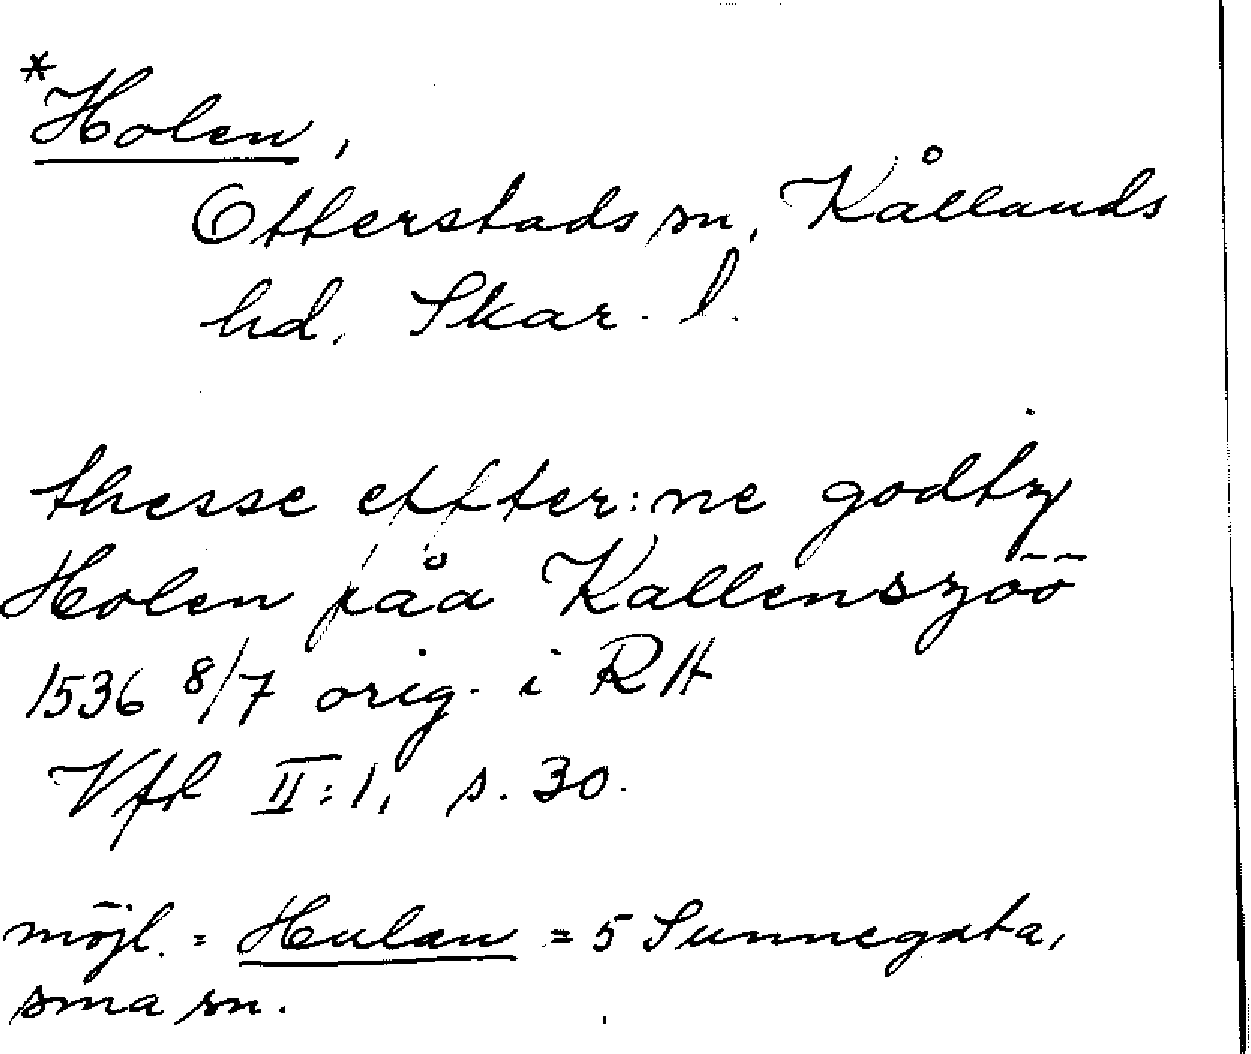 *Holen,
Otterstads sn, Kållands
hd. Skar. l.
thesse effter:ne godhz
Holen påa Kallenszöö
1536 8/7 orig. i RH
Vfl II:1, s. 30.
möjl. = Hulan = 5 Sunnegata,
sma sn.